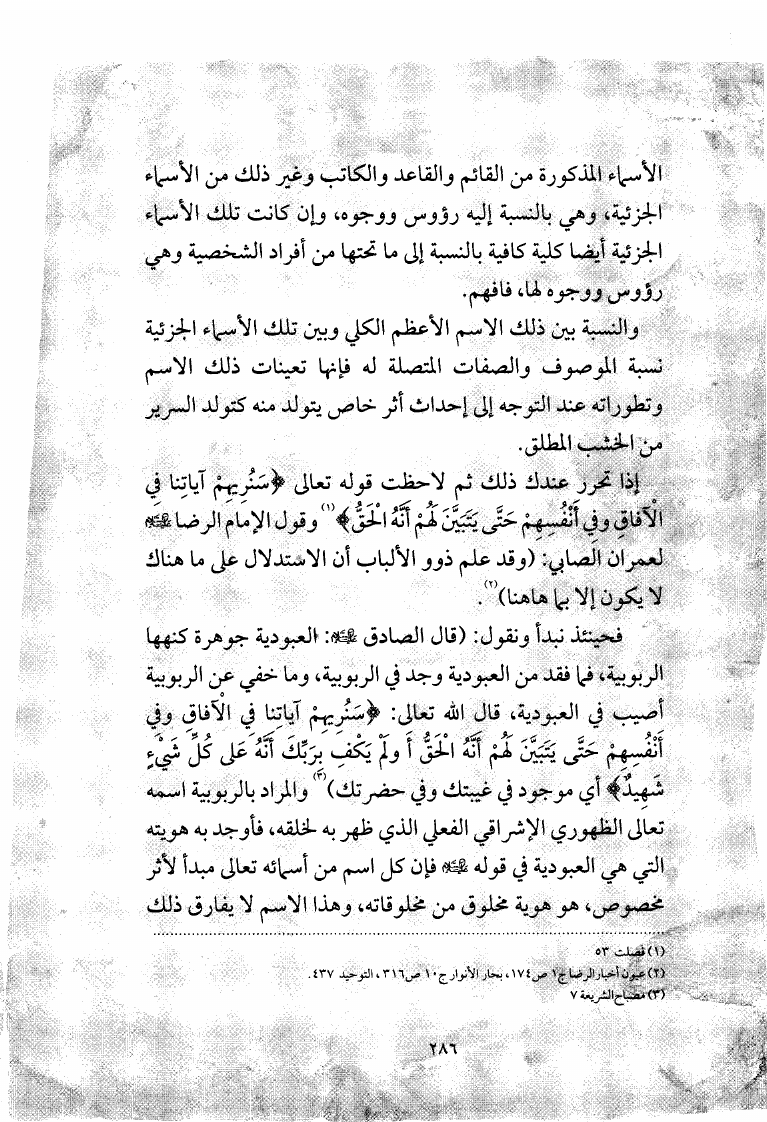 الأسماء المذكورة من القائم والقاعد والكاتب وغير ذلك من الأسماء
الجزئية، وهي بالنسبة إليه رؤوس ووجوه، وإن كانت تلك الأسماء
الجزئية أيضا كلية كافية بالنسبة إلى ما تحتها من أفراد الشخصية وهي
رؤوس ووجوه لها، فافهم.
والنسبة بين ذلك الاسم الأعظم الكلي وبين تلك الأسماء الجزئية
نسبة الموصوف والصفات المتصلة له فإنها تعينات ذلك الاسم
وتطوراته عند التوجه إلى إحداث أثر خاص يتولد منه كتولد السرير
من الخشب المطلق.
إذا تحرر عندك ذلك ثم لاحظت قوله تعالى ﴿سَنُرِيهِمْ آيَاتِنا فِي
الْآفاقِ وفِي أَنْفُسِهِمْ حَتَّى يَتَبَيَّنَ لَهُمْ أَنَّهُ الْحَقُّ﴾(١) وقول الإمام الرضا ﷺ
لعمران الصابي: (وقد علم ذوو الألباب أن الاستدلال على ما هناك
لا يكون إلا بما هاهنا)(٢).
فحينئذ نبدأ ونقول: (قال الصادق ﷺ: العبودية جوهرة كنهها
الربوبية، فما فقد من العبودية وجد في الربوبية، وما خفي عن الربوبية
أصيب في العبودية، قال الله تعالى: ﴿سَنُرِيهِمْ آياتِنا فِي الْآفاقِ وفِي
أَنْفُسِهِمْ حَتَّى يَتَبَيَّنَ لَهُمْ أَنَّهُ الْحَقُّ أَ ولَمْ يَكْفِ بِرَبِّكَ أَنَّهُ عَلى كُلِّ شَيْءٍ
شَهِيدٌ﴾ أي موجود في غيبتك وفي حضرتك)(٣) والمراد بالربوبية اسمه
تعالى الظهوري الإشراقي الفعلي الذي ظهر به لخلقه، فأوجد به هويته
التي هي العبودية في قوله ﷺ فإن كل اسم من أسمائه تعالى مبدأ لأثر
مخصوص، هو هوية مخلوق من مخلوقاته، وهذا الاسم لا يفارق ذلك
(١) فصلت ٥٣
(٢) عيون أخبار الرضا ج١ ص١٧٤، بحار الأنوار ج١٠ ص٣١٦، التوحيد ٤٣٧.
(٣) مصباح الشريعة ٧
٢٨٦